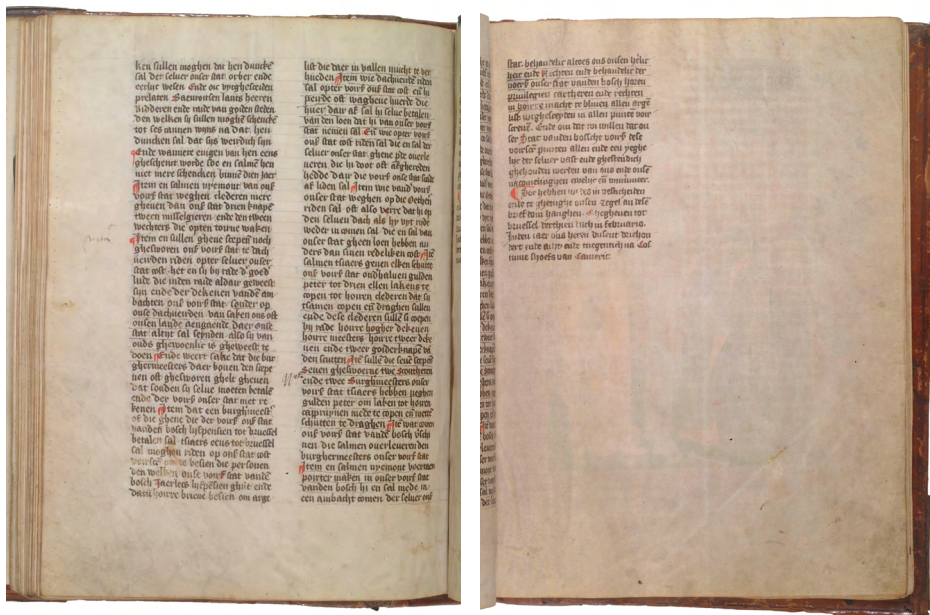 ken sullen moghen dat hen duncke
sal der seluer onser stat orber ende
eerlijc wesen Ende oic vreghesteden
prelaten Baenrotsen lants heeren
Ridderen ende raide van goeden steden
den welken sij sullen moghen schencke
tot ses cannen wijns na dat hen
duncken sal dat sijs weerdich sijn
Ende wanneer enigen van hen eens
ghescheinct worde soe en salmen hen
niet meer schencken binnen dien jaer
Item en salmen nyemont van ons
voirs stat weghen clederen mere
gheuen dan ons stat drien knapen
tween misselgieren ende den tween
wechters die opten torne waken
Item en sullen ghene scepen noch
ghesworen ons voirs stat te dach
uerden riden opter seluer onser
stat cost het en sij bij rade der goed
lude die inden raide aldair geweest
sijn ende der dekenen vanden am
bachten ons voirs stat sonder op
onse dachuerden van saken ons oft
onsen lande aengaende daer onse
stat altijt sal seynden alsoe sij van
ouds ghewoenlic is gheweest te
doen Ende weert sake dat die bur
ghermeesters daer bouen den scepen
nen oft ghesworen ghelt gheuen
dat souden sij selue moeten betalen
ende der voirs onser stat met re
kenen Item dat een burghmeester
of die ghene die der voirs ons stat
vanden bosch lijfpensien tot bruessel
betalen sal tsiaers eens tot bruessel
sal moghen riden op ons stat cost
voirscreuen besien die persoenen
den welken onse voirs stat vanden
bosch Jaerlics lijfpensien ghilt ende
dair houre brieue besien om arge
list die daer in vallen mucht te ver
hueden Item wie dachuerde riden
sal opter voirs ons stat cost en sal
peerde oft waghene hueren die
huer dair af sal hi selue betalen
van den loen dat hi van onser voirs
stat nemen sal En wie opter voirs
ons stat cost riden sal die en sal der
seluer onser stat ghene peerde ouerle
ueren die hi doot oft afghereden
hedde dair die voirs onse stat scade
af liden sal Item wie vander voirs
onser stat weghen op die Gethen
riden sal oft also verre dat hij op
den seluen dach als hij vut ridt
weder in comen sal die en sal van
onser stat gheen loen hebben an
ders dan sinen redeliken cost Item
salmen tsiaers geuen elken schutte
ons voirs stat oudhaluen gulden
peter tot drien ellen lakens te
copen tot houren clederen dat sij
tsamen copen en draghen sullen
ende dese clederen sullen si copen
bij rade houre hogher dekenen
houre meesters houre tweer deke
nen ende tweer gosderknapen van
den scutten Item sullen die seuen scepen
Seuen ghesworene twe Scoutheten
ende twee Burghmeesters onser
voirs stat tsiaers hebben neghen
gulden peter om laken tot houren
caproynen mede te copen en metten
schutten te draghen Item wat coren
ons voirs stat vanden bosch vschi
nen die salmen ouerleueren den
burghermeesters onser voirs stat
Item en salmen nyemont voertaen
poirter maken in onser voirs stat
vanden bosch hi en sal mede in
een ambacht comen der seluer ons
stat behoudelic altoes ons onsen heer
heer ende Rechten ende behoudelic der
voers onser stat vanden bosch horen
priuilegien chartheren ende rechten
in hoirre macht te bliuen allen arge
list vutgheseghen in allen punten voir
screuen Ende om dat wi willen dat on
ser Stat vanden bossche voirs dese
voirscreuen punten allen ende een yeghe
lijc der seluer vast ende ghestendich
ghehouden werden van ons ende onse
nacomelingen ewelijc en vmmermeer
Soe hebben wij des in oerkonden
onse te ghetughe onsen zegel an desen
brief doen hanghen Ghegheuen tot
bruessel derthien daich in februario
Inden iaer ons heren dusent drichon
dert ende acht ende tneghentich na Cos
tume shoefs van Cameric